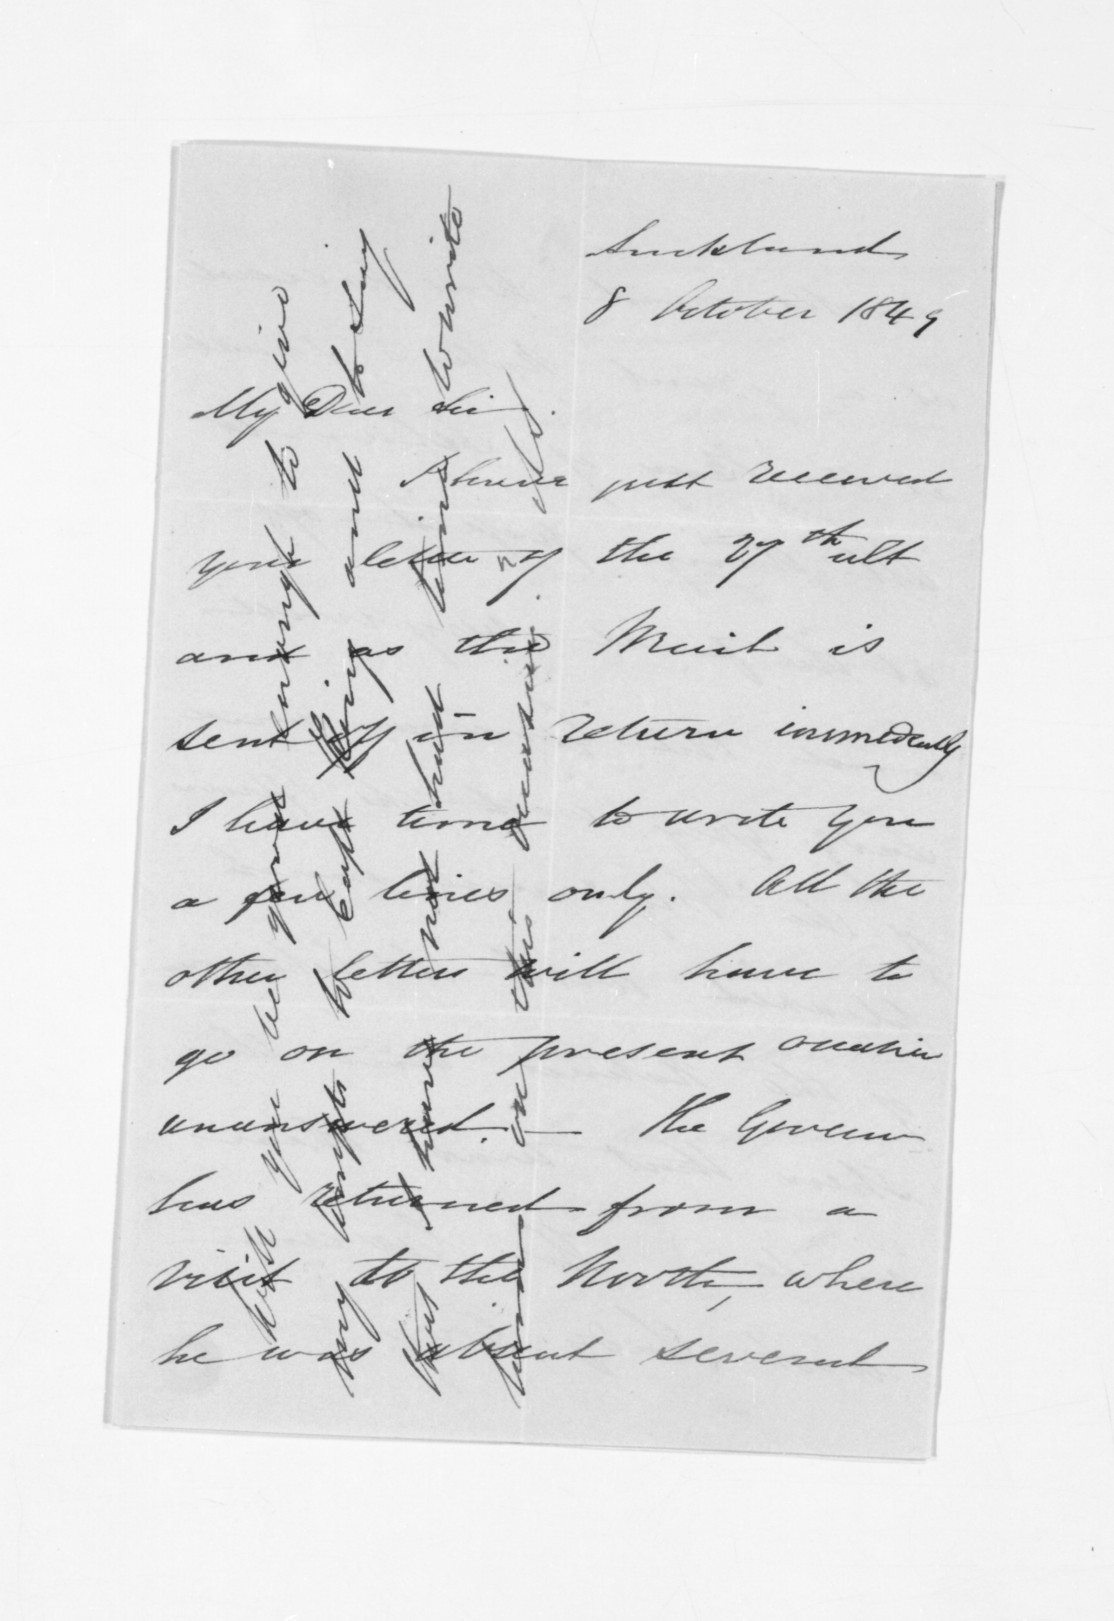 Auckland
8 October 1849
My Dear Sir.
I have just received
your letter of the 27th ult
and as the Mail is
sent off in return immedeatly
I have time to write you
a few lines only. All the
other letters will have to
go on the present occasion
unanswered. — The Governor
has returned from a
visit to the North, where
he was absent several
Will you be good enough to give
my compts to Capt King and to say
that I have not had time to write
him on this occasion.